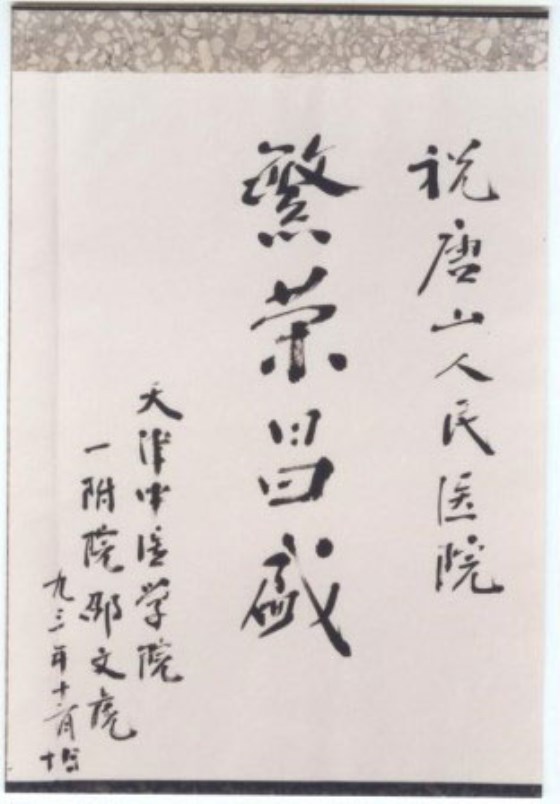 祝唐山人民医院
繁荣昌盛
天津中医学院
一附院邢文虎
九三年十二月